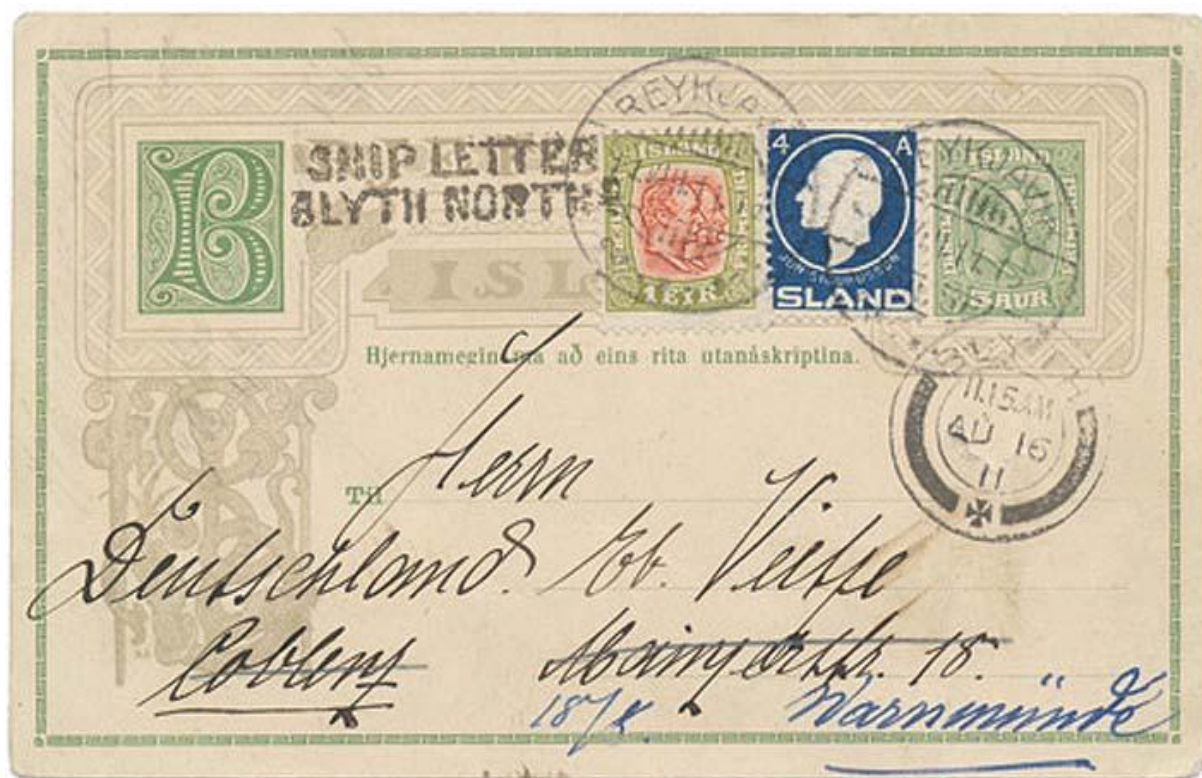 B
SHIP LETTER
BLYTH NORTH
REYKJA
ISLAND
1 EYR.
4 A
JÓN SIGURÐSSON
SLAND
REYKJAVIK
ISLAND
5 AUR
ISL
Hjernamegin má að eins rita utanáskriptina.
11.15AM
AU 16
11
Til
Herrn
Deutschland.
Coblenz
Mainzerstr. 18.
Warnemünde